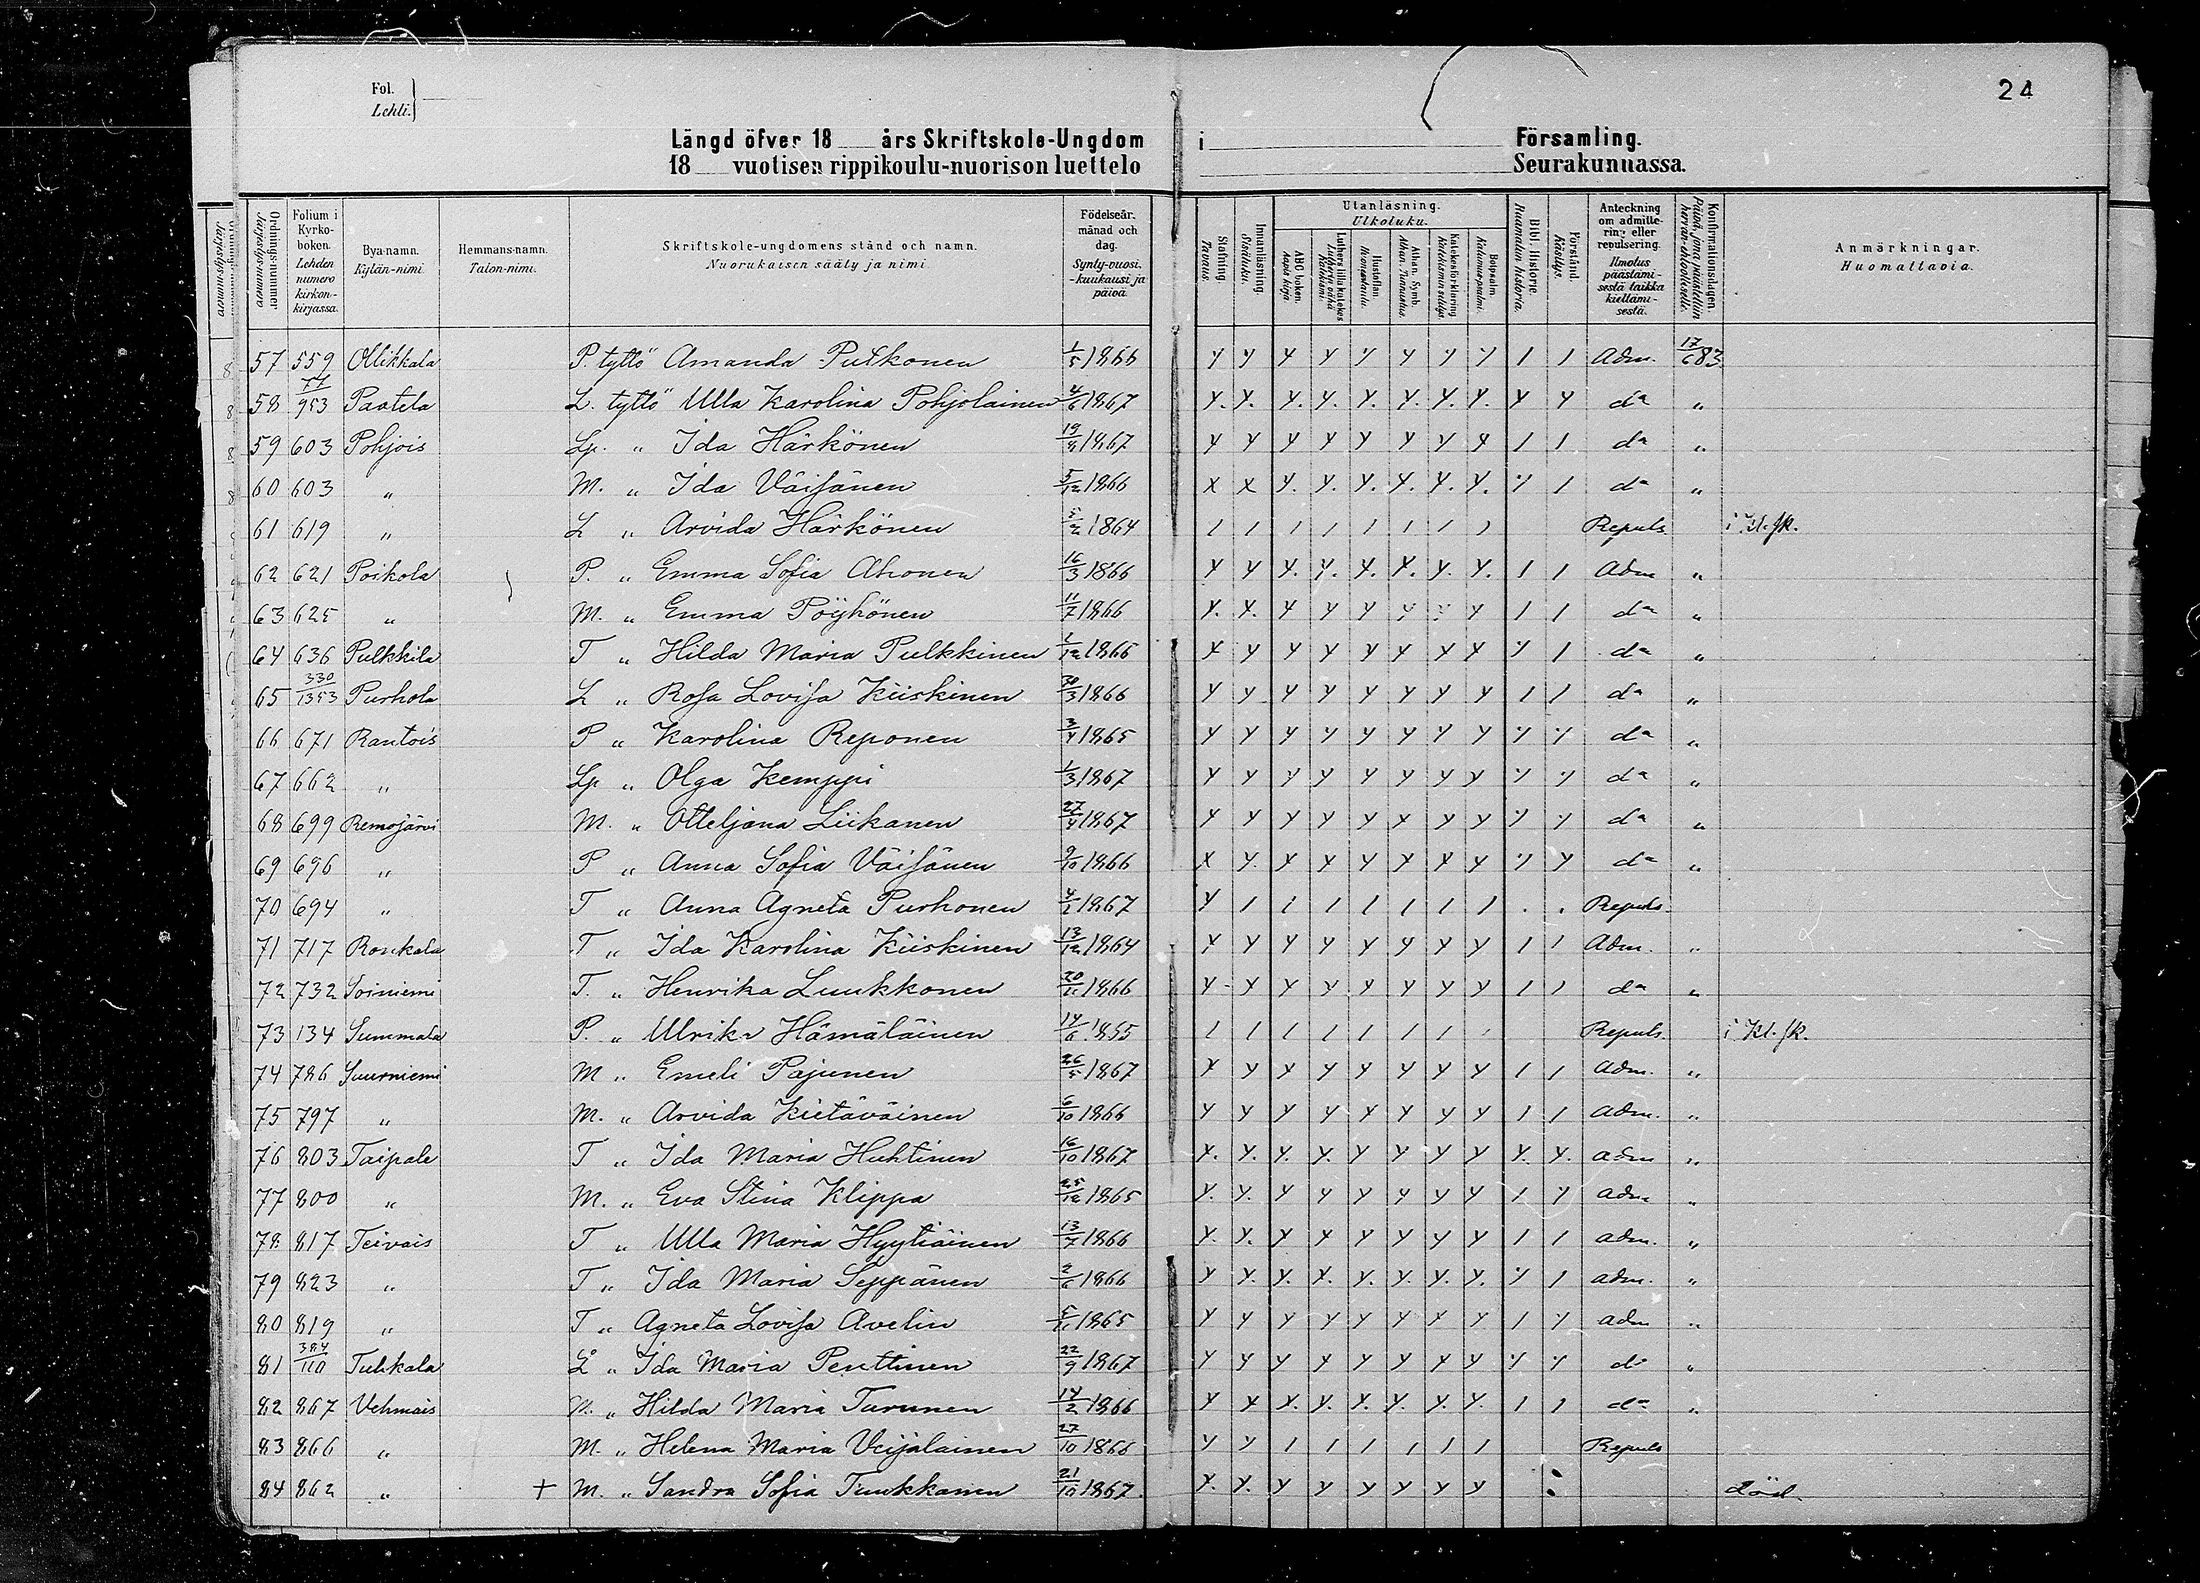 24
Fol.
Lehti.
Längd öfver 18 års Skriftskole-Ungdom i Församling.
18 vuotisen rippikoulu-nuorison luettelo Seurakunnassa.
Ordnings-nummer. Järjestys-numero
Folium i Kyrko-boken. Lehden numero kirkon-kirjassa.
Bya-namn. Kylän-nimi.
Hemmans-namn. Talon-nimi.
Skriftskole-ungdomens stånd och namn. Nuorukaisen sääty ja nimi.
Födelseår, månad och dag. Synty-vuosi, -kuukausi ja päivä.
Stafning. Tavaus.
Innanläsning. Sisäluku.
Utanläsning. Ulkoluku.
ABC boken. Aapis kirja
Luthers lilla katekes
Hustaflan. Huoneentaulu.
Athan. Symb. Athan. Tunnustus.
Katekesförklaring Katekismus selitys.
Botpsalm. Katumus-psalmi.
Bibl. Historie. Raamatun historia.
Förstånd. Käsitys.
Anteckning om admittering eller repulsering. Ilmoitus päästämisestä taikka kieltämisestä.
Konfirmationsdagen. Päivä, jona päästettiin herran-ehtoolliselle.
Anmärkningar. Huomattavia.
57 559 Ollikkala P. tyttö Amanda Pulkonen 1/5 1866 y y y y y y y y / / Adm. 17/6 83
58 77/953 Paatela L. tyttö Ulla Karolina Pohjolainen 4/6 1867 y. y. y. y. y. y. y. y. y y do „
59 603 Pohjois Lp. „ Ida Härkönen 19/8 1867 y y y y y y y y / / do „
60 603 „ M. „ Ida Väisänen 5/12 1866 x x y. y. y. y. y. y. ·/· / do „
61 619 „ L „ Arvida Härkönen 5/2 1864 / / / / / / / / Repuls. i Kl. sk.
62 621 Poikola P. „ Emma Sofia Ahonen 16/3 1866 y y y. y. y. y. y. y. / / Adm „
63 625 „ M. „ Emma Pöyhönen 11/7 1866 y. y. y y y y y y / / do „
64 636 Pulkkila T „ Hilda Maria Pulkkinen 1/12 1866 y y y y y y y y ·/· / do „
65 330/1353 Purhola L „ Rosa Lovisa Kiiskinen 30/3 1866 y y y y y y y y / / do „
66 671 Rantois P „ Karolina Reponen 3/4 1865 y y y y y y y y ·/· ·/· do „
67 662 „ Lp „ Olga Kemppi 1/3 1867 y y y y y y y y ·/· ·/· do „
68 699 Remojärvi M. „ Otteljana Liikanen 27/4 1867 y y y y y y y y ·/· ·/· do „
69 696 „ P „ Anna Sofia Väisänen 9/10 1866 x y. y y y y y y ·/· y do „
70 694 „ T „ Anna Agneta Purhonen 1867 y / / / / / / / . . Repuls.
71 717 Roukala T „ Ida Karolina Kiiskinen 13/12 1864 y y y y y y y y / / Adm. „
72 732 Soiniemi T. „ Henrika Luukkonen 20/11 1866 y y y y y y y y / / do „
73 134 Summala P. „ Ulrika Hämäläinen 14/6 1855 / / / / / / / Repuls. i Kl. sk.
74 786 Suurniemi M „ Emeli Pajunen 26/5 1867 y y y y y y y y / / Adm. „
75 797 „ M. „ Arvida Kietäväinen 6/10 1866 y y y y y y y y / / Adm. „
76 803 Taipale T „ Ida Maria Huhtinen 16/10 1867 y. y. y. y. y y y y y. y. adm „
77 800 „ M. „ Eva Stina Klippa 25/12 1865 y. y. y y y y y y / y adm „
78 817 Teivais T „ Ulla Maria Hyytiäinen 13/7 1866 y. y. y y y y y y / / adm. „
79 823 „ T „ Ida Maria Seppänen 2/6 1866 y y. y. y. y. y. y. y. ·/· / adm. „
80 819 „ T „ Agneta Lovisa Avelin 5/11 1865 y y y y y y y y / y adm „
81 384/110 Tuhkala L „ Ida Maria Penttinen 22/9 1867 y y y y y y y y ·/· ·/· do „
82 867 Vehmais M. „ Hilda Maria Turunen 14/2 1866 y y y. y. y. y. y. y. / / do „
83 866 „ M. „ Helena Maria Veijalainen 27/10 1866 y y / / / / / / Repuls
84 862 „ + M. „ Sandra Sofia Tuukkanen 21/10 1867. y. y. y y y y y y : död.